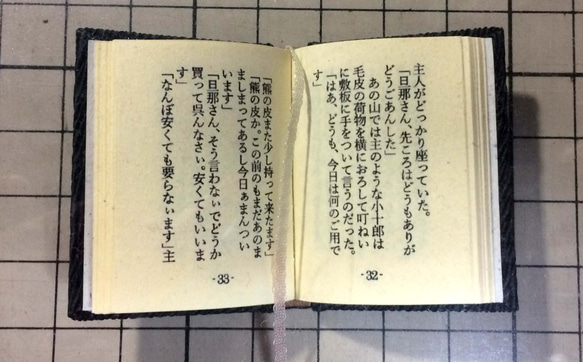 主人がどっかり座っていた。
「旦那さん、先ころはどうもありが
どうごあんした」
あの山では主のような小十郎は
毛皮の荷物を横におろして叮ねい
に敷板に手をついて言うのだった。
「はあ、どうも、今日は何のご用で
す」
-32-
「熊の皮また少し持って来たます」
「熊の皮か。この前のもまだあのま
ましまってあるし今日ぁまんつい
います」
「旦那さん、そう言わなぃでどうか
買って呉んなさぃ。安くてもいいま
す」
「なんぼ安くても要らなぃます」主
-33-